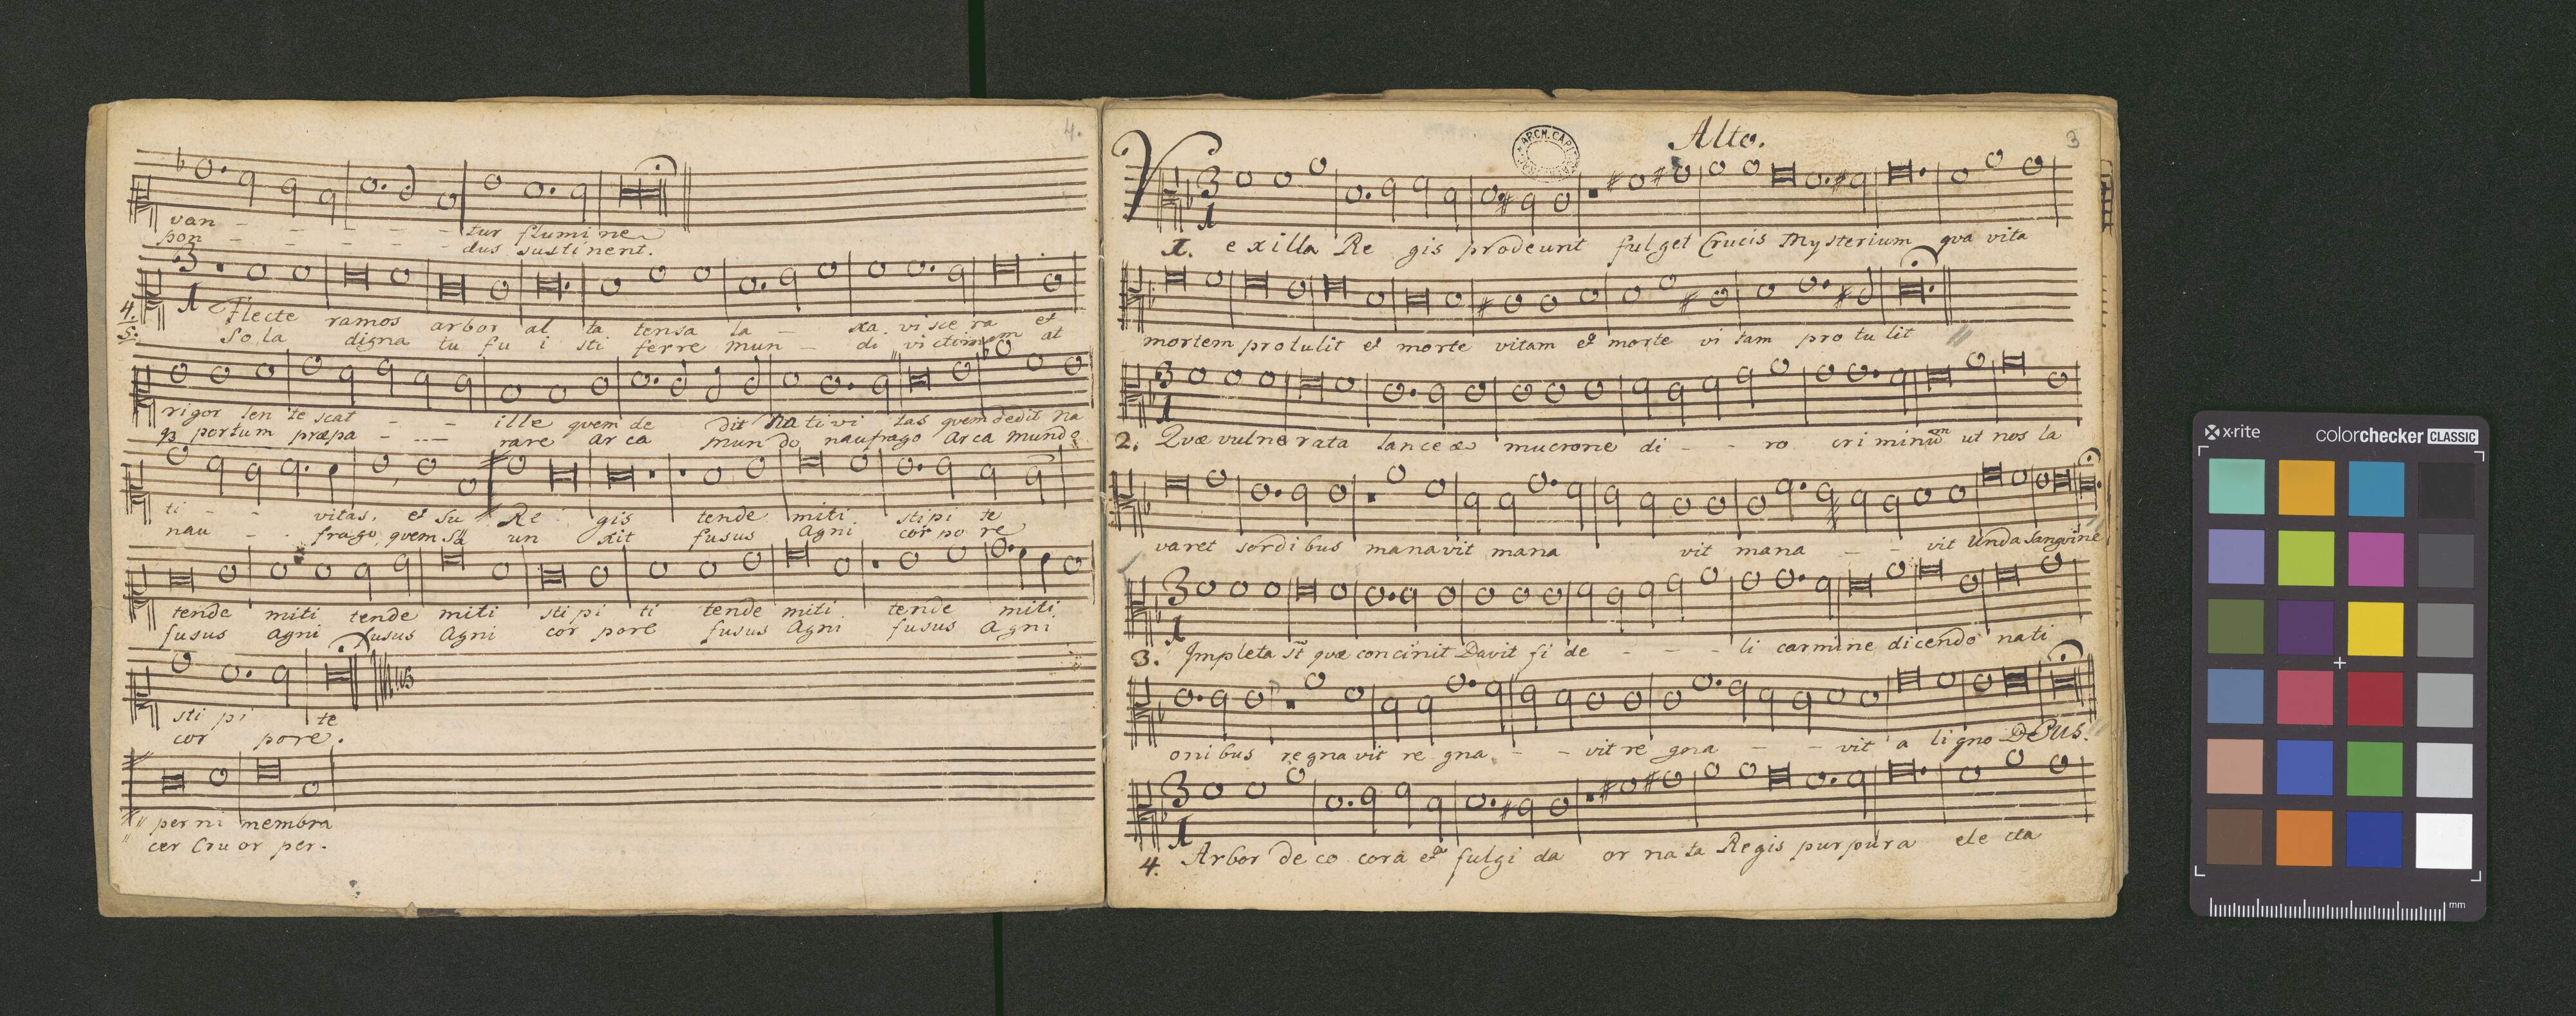 4.
van - - - - - - tur flumine
pon - - - - - - dus sustinent.
3
1
4. Flecte ramos arbor al ta tensa la - xa viscera et
5. Sola digna tu fu i sti ferre mun - di victimam at
rigor len te scat - - - ille quem de dit Na tivi tas quem dedit na
portum præpa - - - - rare arca mundo naufrago arca mundo
ti - - vitas, et Su Re gis tende miti stipi te
nau - - frago, quem sa un xit fusus Agni cor po re
tende miti tende miti sti pi ti tende miti tende miti
fusus Agni fusus Agni cor pore fusus Agni fusus Agni
sti pi te
cor pore.
" perni membra
" cer Cruor per.
Alto.
3
ARCH. CAPI
V
3
1
1. exilla Re gis prodeunt fulget Crucis Mysterium qva vita
mortem protulit et morte vitam et morte vi tam pro tu lit
3
1
2. Qvæ vulne rata lanceæ mucrone di - - ro cri minũ ut nos la
varet sordibus manavit mana vit mana - - vit Unda sangvine
3
1
3. Impleta st̃ qvæ concinit Davit fi de - - - li carmine dicendo nati
onibus regnavit re gna - - vit re gna - - vit a ligno DeUs.
3
1
4. Arbor de co cora et fulgi da or na ta Regis purpura ele cta
x-rite
colorchecker CLASSIC
mm